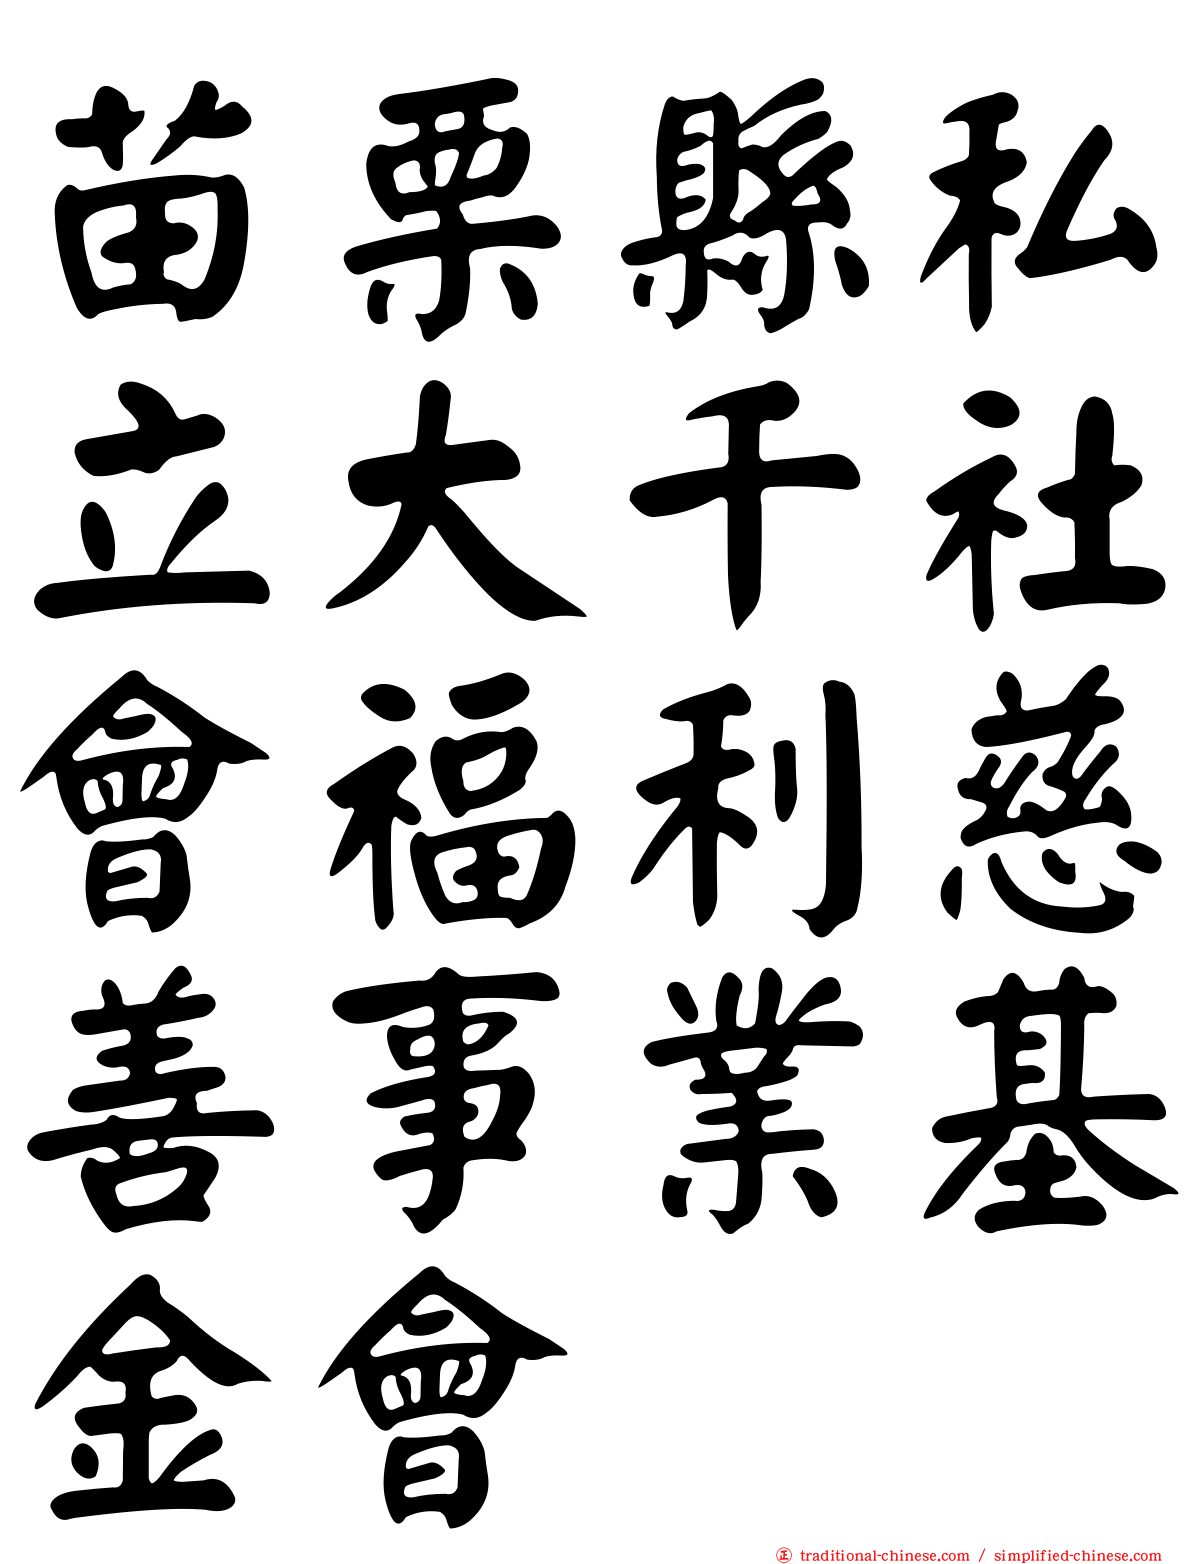 苗栗縣私
立大千社
會福利慈
善事業基
金會
正 traditional-chinese.com / simplified-chinese.com